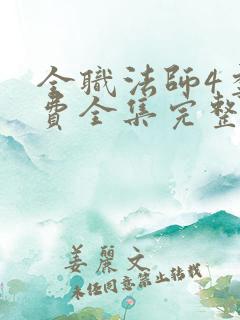 全職法師4
費全集完整
姜麗文
未经同意禁止转载